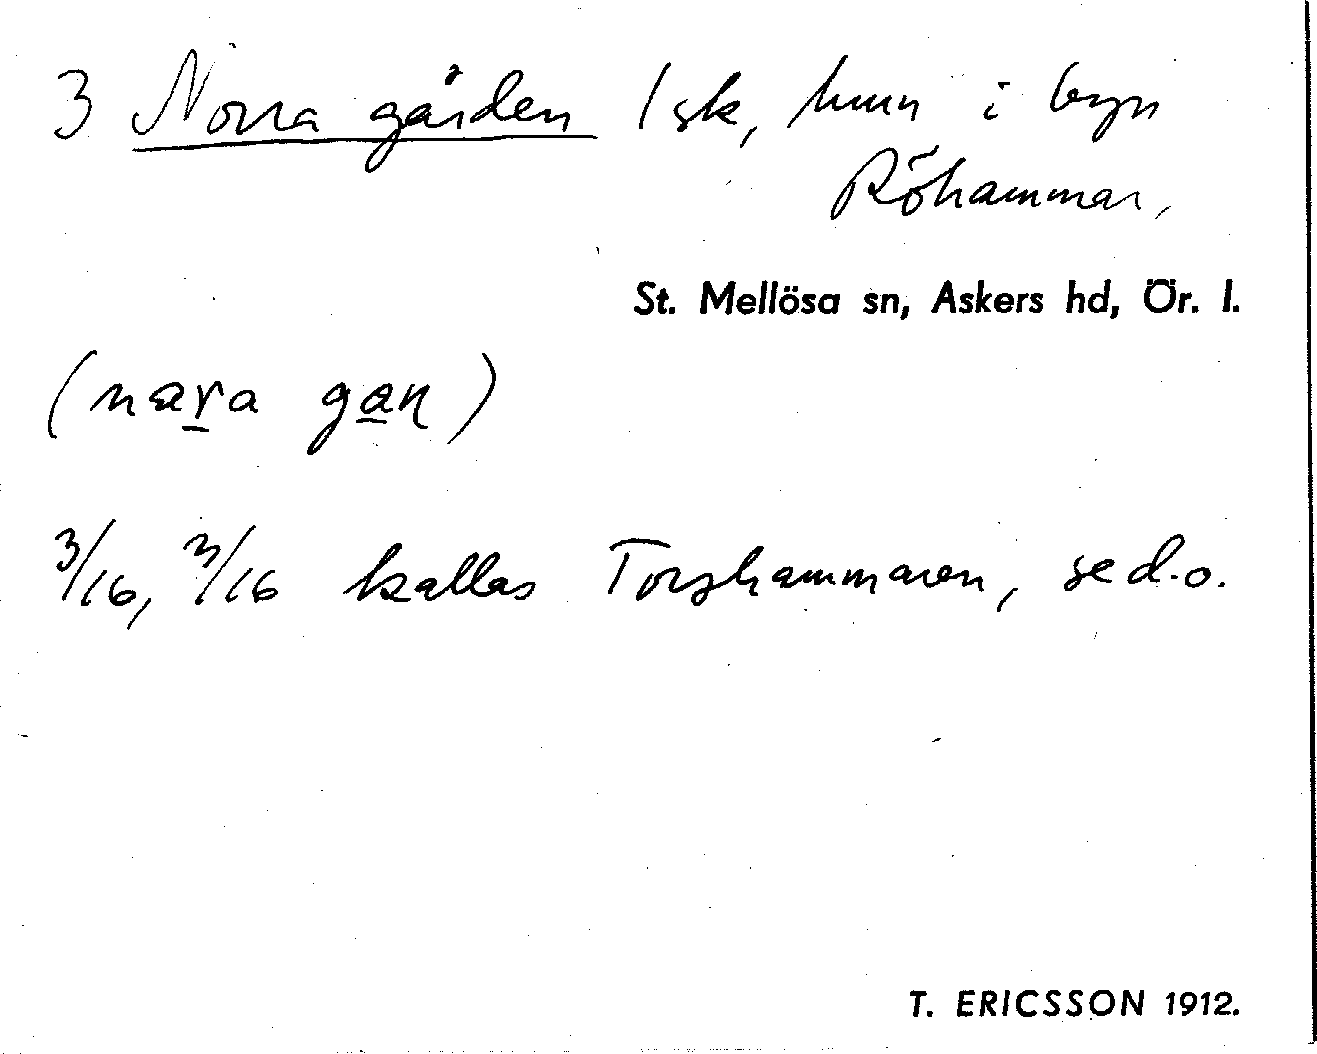 3 Norra gården 1 sk, hmn i byn
Röhammar,
St. Mellösa sn, Askers hd, Ör. l.
(nara gaɳ)
3/16, 3/16 kallas Torshammaren, se d.o.
T. ERICSSON 1912.